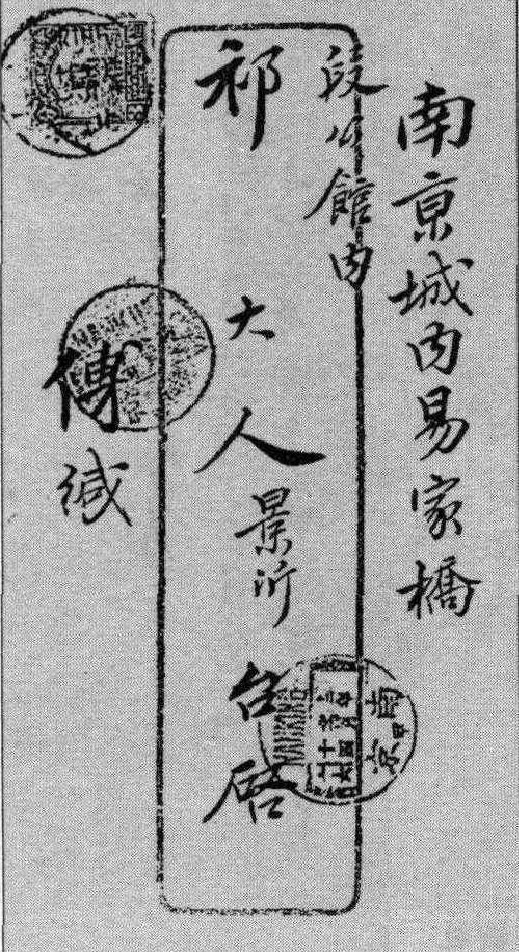 南京城内易家橋
段公館内
祁大人景沂台啓
傅緘
南京
NANKING